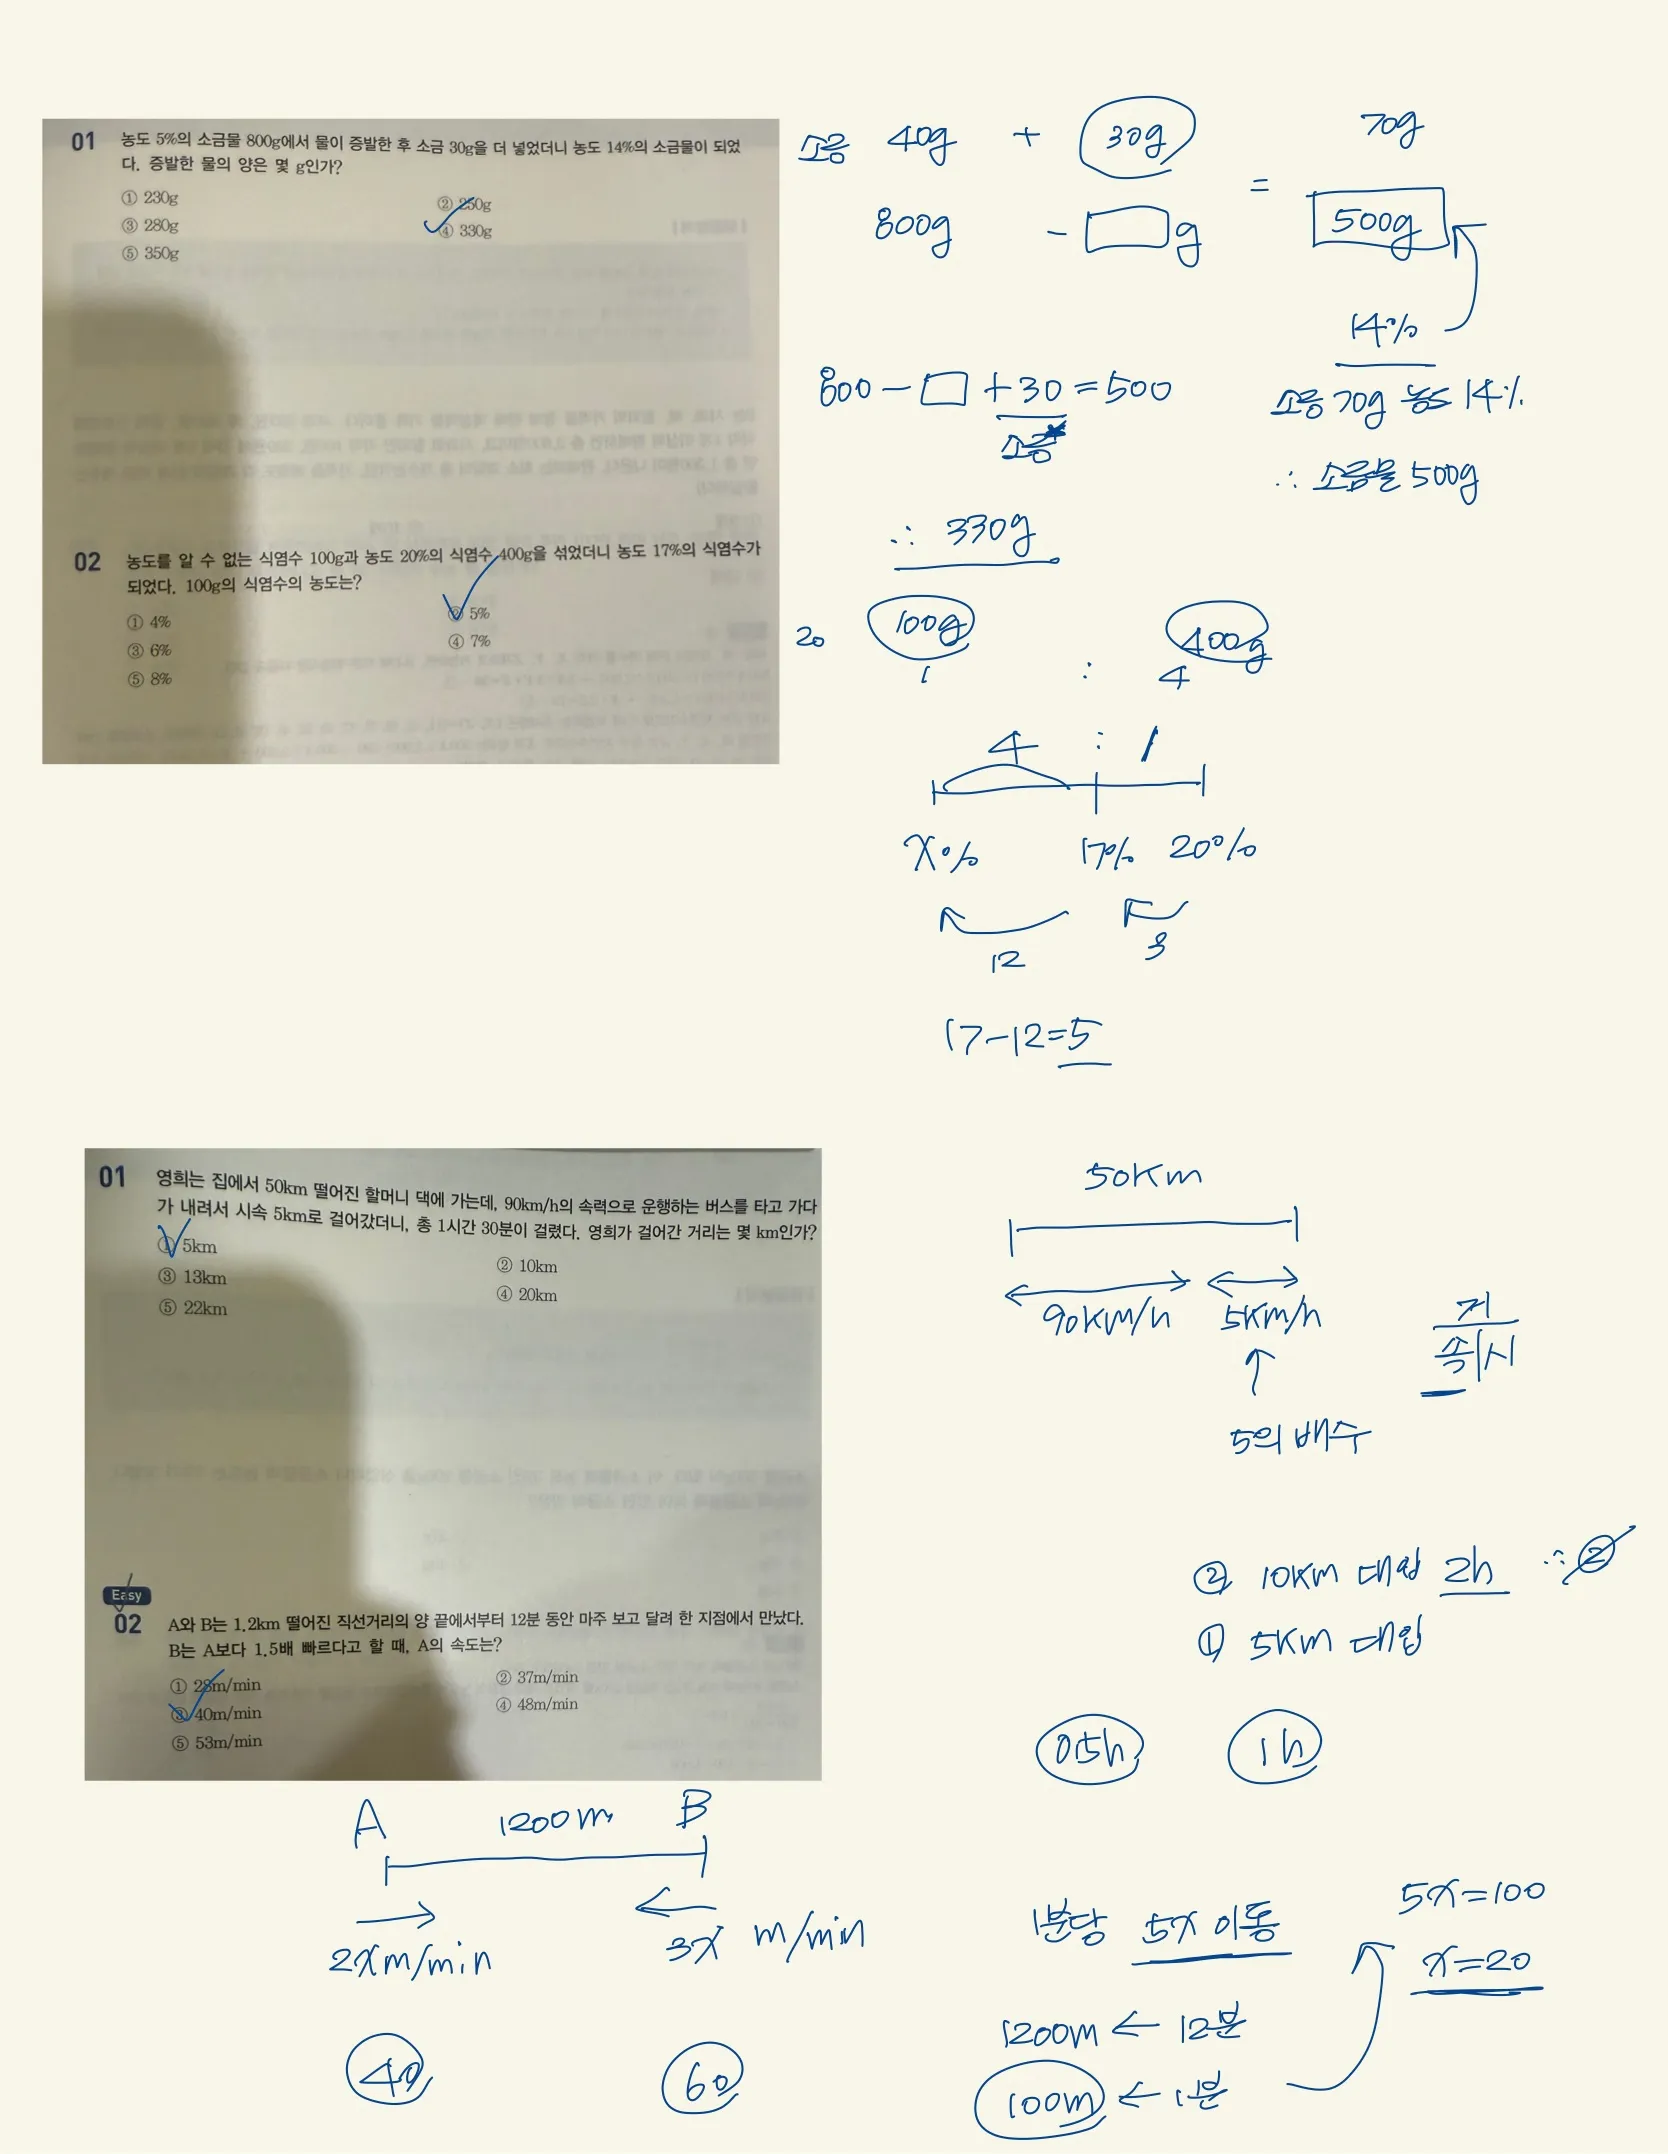 01 농도 5%의 소금물 800g에서 물이 증발한 후 소금 30g을 더 넣었더니 농도 14%의 소금물이 되었
다. 증발한 물의 양은 몇 g인가?
① 230g
② 250g
③ 280g
④ 330g
⑤ 350g
02 농도를 알 수 없는 식염수 100g과 농도 20%의 식염수 400g을 섞었더니 농도 17%의 식염수가
되었다. 100g의 식염수의 농도는?
① 4%
② 5%
③ 6%
④ 7%
⑤ 8%
소금 40g + 30g = 70g
800g - □g 500g
14%
800 - □ + 30 = 500
소금
소금 70g 농도 14%
∴ 소금물 500g
∴ 330g
20 100g 400g
1 : 4
4 : 1
x% 17% 20%
12 3
17-12=5
01 영희는 집에서 50km 떨어진 할머니 댁에 가는데, 90km/h의 속력으로 운행하는 버스를 타고 가다
가 내려서 시속 5km로 걸어갔더니, 총 1시간 30분이 걸렸다. 영희가 걸어간 거리는 몇 km인가?
① 5km
② 10km
③ 13km
④ 20km
⑤ 22km
Easy
02 A와 B는 1.2km 떨어진 직선거리의 양 끝에서부터 12분 동안 마주 보고 달려 한 지점에서 만났다.
B는 A보다 1.5배 빠르다고 할 때, A의 속도는?
① 28m/min
② 37m/min
③ 40m/min
④ 48m/min
⑤ 53m/min
50Km
90KM/h 5KM/h
거
속 시
5의 배수
② 10Km 대입 2h ∴ ②
① 5Km 대입
0.5h 1h
A 1200m B
2xm/min 3x m/min
40 60
1분당 5x 이동
1200m ← 12분
100m ← 1분
5x=100
x=20